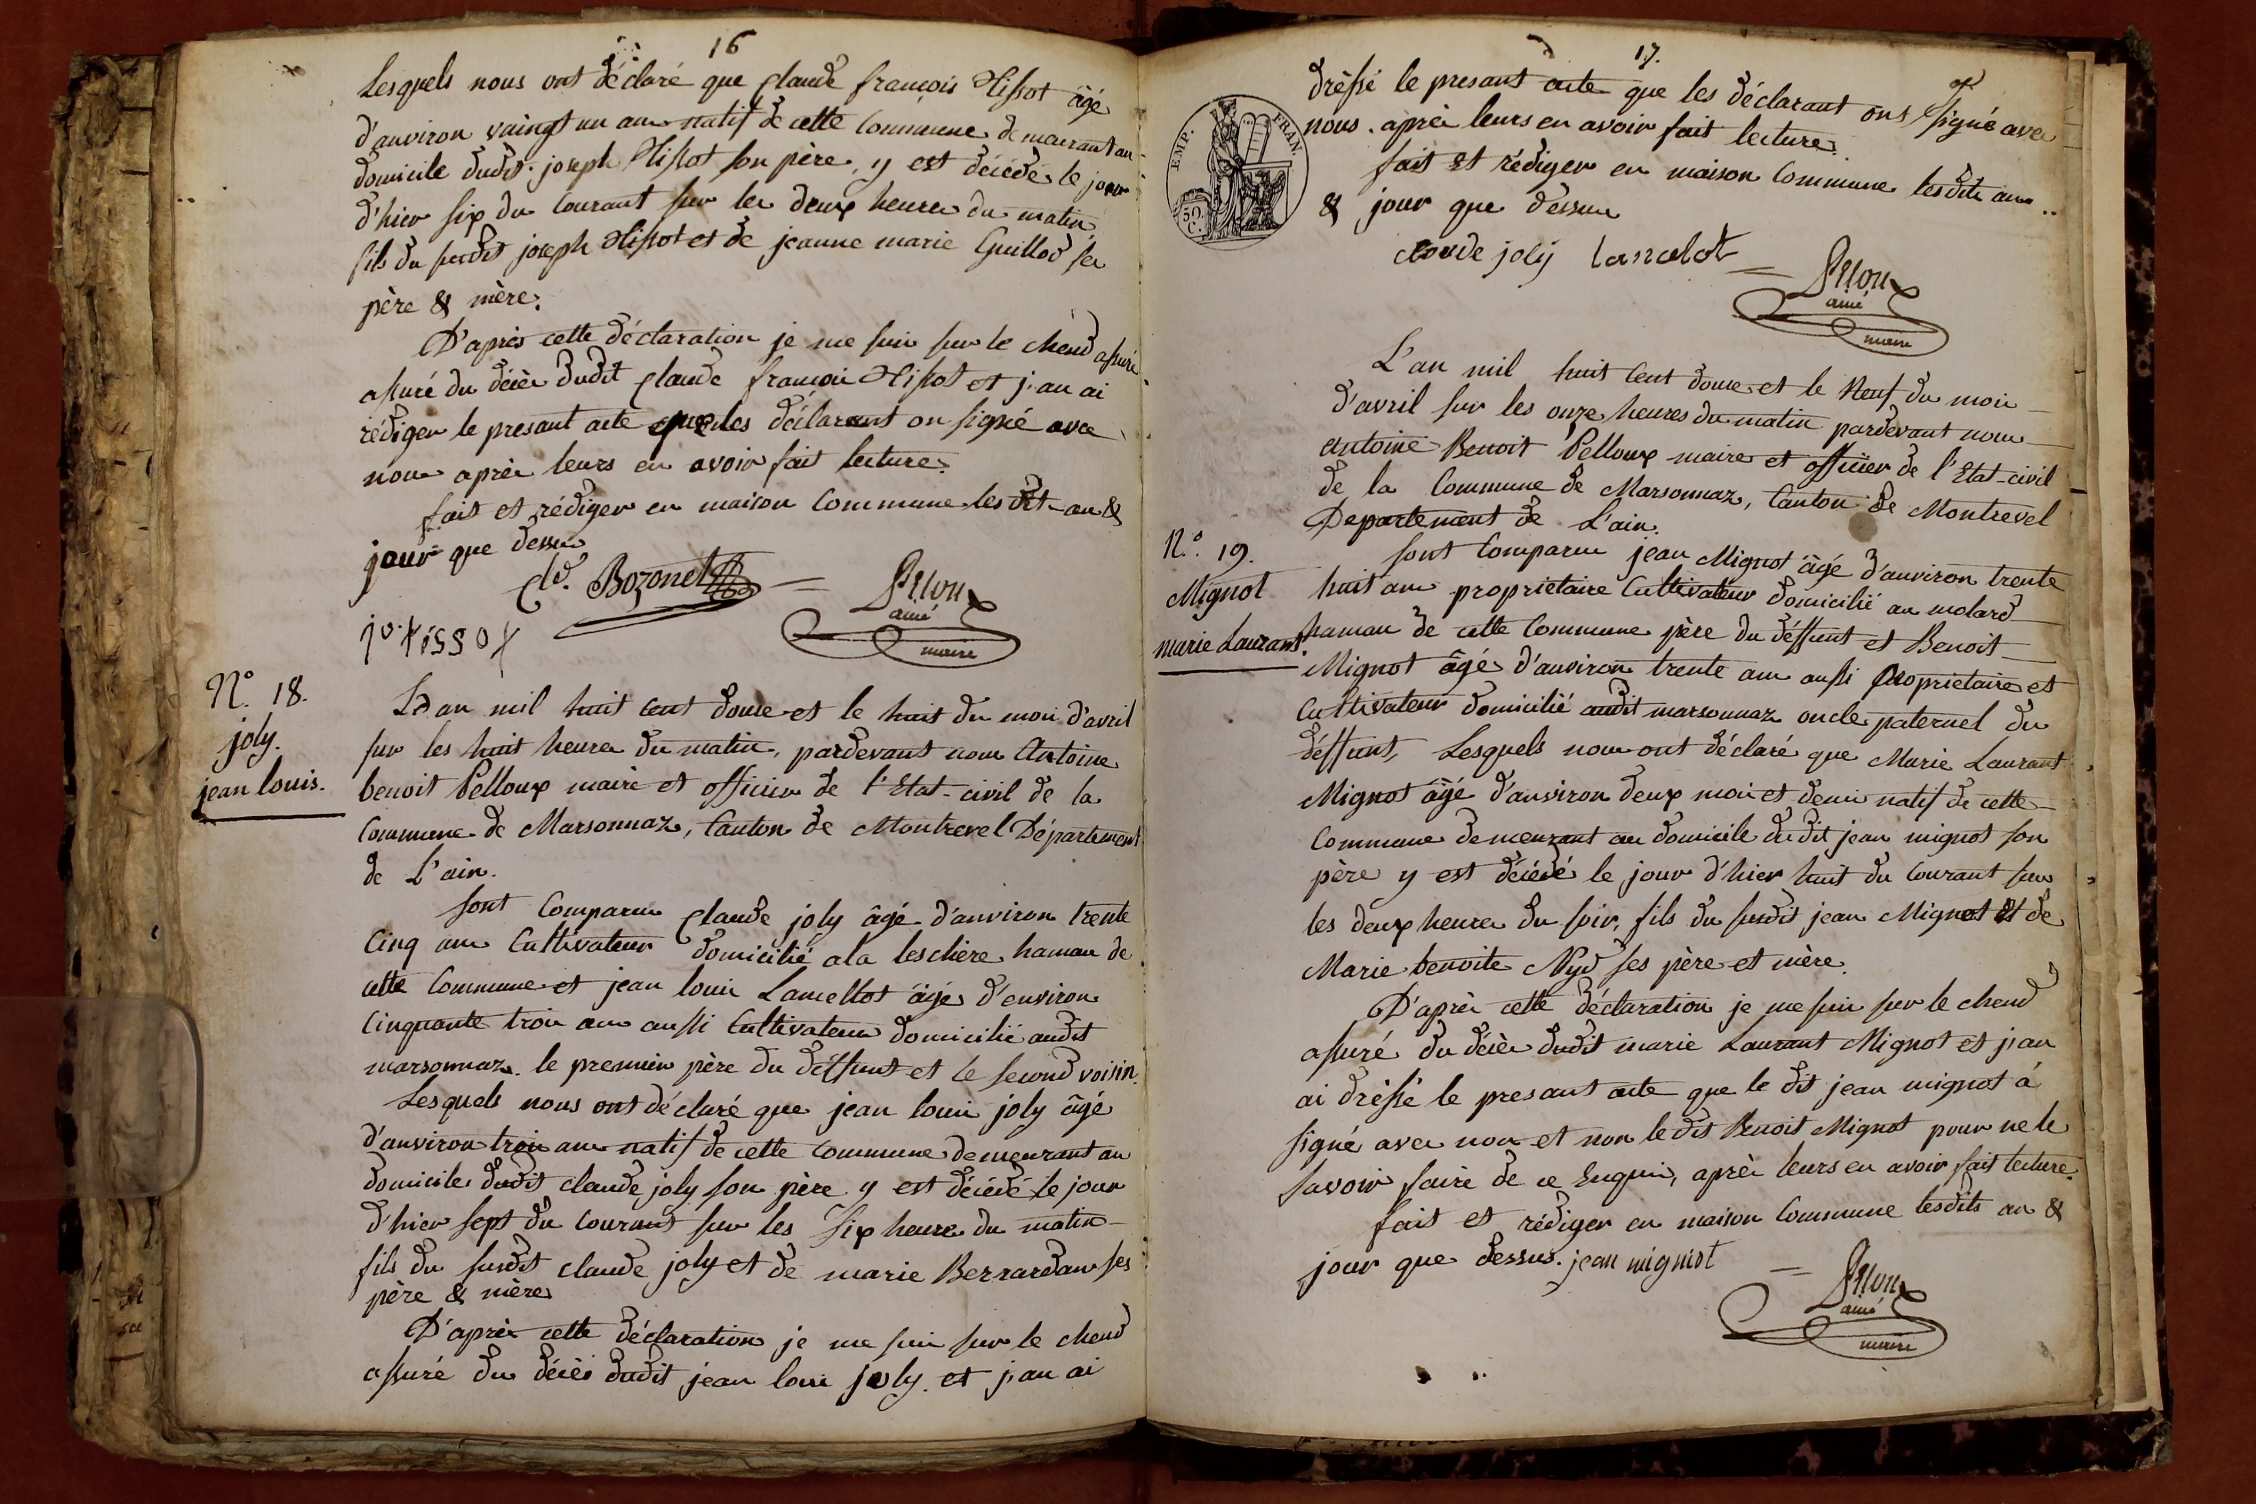 16
Lesquels nous ont déclaré que Claude françois Tissot âgé
d'anviron vaingt un ans natif de cette Commune demeurant au
domicile dudit joseph Tissot son père, y est décédé le jour
d'hier six du Courant sur les deux heures du matin,
fils du susdit joseph Tissot et de jeanne marie Guillod ses
père & mère.
D'après cette déclaration je me suis sur le chend assuré
assuré du décès dudit Claude françois Tissot et j'an ai
rédiger le presant acte que les déclarant on signé avec
nous après leurs en avoir fait lecture.
fait et rédiger en maison Commune lesdit an &
jour que dessus
Cd. Bozonet
jo. tissot
Pelloux
ainé
maire
N.° 18.
joly.
jean louis.
L'an mil huit cent douze et le huit du mois d'avril
sur les huit heures du matin, pardevant nous Antoine
benoit Pelloux maire et officier de l'Etat-civil de la
Commune de Marsonnaz, Canton de Montrevel Département
de L'ain.
sont Comparus Claude joly âgé d'anviron trente
Cinq ans Cultivateur domicilié a la leschère hamau de
cette Commune et jean louis Lancellot âgé d'environ
Cinquante trois ans aussi Cultivateur domicilié audit
marsonnaz. le premier père du déffunt et le second voisin.
Lesquels nous ont déclaré que jean louis joly âgé
d'anviron trois ans natif de cette Commune demeurant au
domicile dudit claude joly son père y est décédé le jour
d'hier sept du courant sur les six heures du matin
fils du susdit claude joly et de marie Berrardan ses
père & mère
D'après cette déclaration je me suis sur le chend
assuré du décès dudit jean louis joly. et j'an ai
17.
EMP. FRAN.
50.
C.
drèssé le presant acte que les déclarant ons signé avec
nous. après leurs en avoir fait lecture
fait et rédiger en maison Commune lesdits ans
& jour que dessus
cloude joly lancelot
Pelloux
ainé
maire
L'an mil huit Cent douze et le Neuf du mois
d'avril sur les onze heures du matin pardevant nous
antoine Benoit Pelloux maire et officier de l'Etat-civil
de la Commune de Marsonnaz, Canton de Montrevel
Departement de L'ain.
N.° 19.
Mignot
marie Laurant.
sont Comparus jean Mignot âgé d'anviron trente
huit ans propriétaire Cultivateur domicilié au molard
hamau de cette Commune père du déffunt et Benoit
Mignot âgé d'anviron trente ans aussi propriétaire et
Cultivateur domicilié audit marsonnaz oncle paternel du
déffunt, Lesquels nous ont déclaré que Marie Laurant
Mignot âgé d'anviron deux mois et demi natif de cette
Commune demeurant au domicile dudit jean mignot son
père y est décédé le jour d'hier huit du Courant sur
les deux heures du soir, fils du susdit jean Mignot et de
Marie benoite Nyd ses père et mère.
D'après cette déclaration je me suis sur le chend
assuré du décès dudit marie Laurant Mignot et j'an
ai drèssé le presant acte que le dit jean mignot à
signé avec nous et non le dit Benoit Mignot pour ne le
savoir faire de ce Enquis, après leurs en avoir fait lecture.
fait et rédiger en maison Commune lesdits an &
jour que dessus. jean mignot
Pelloux
ainé
maire